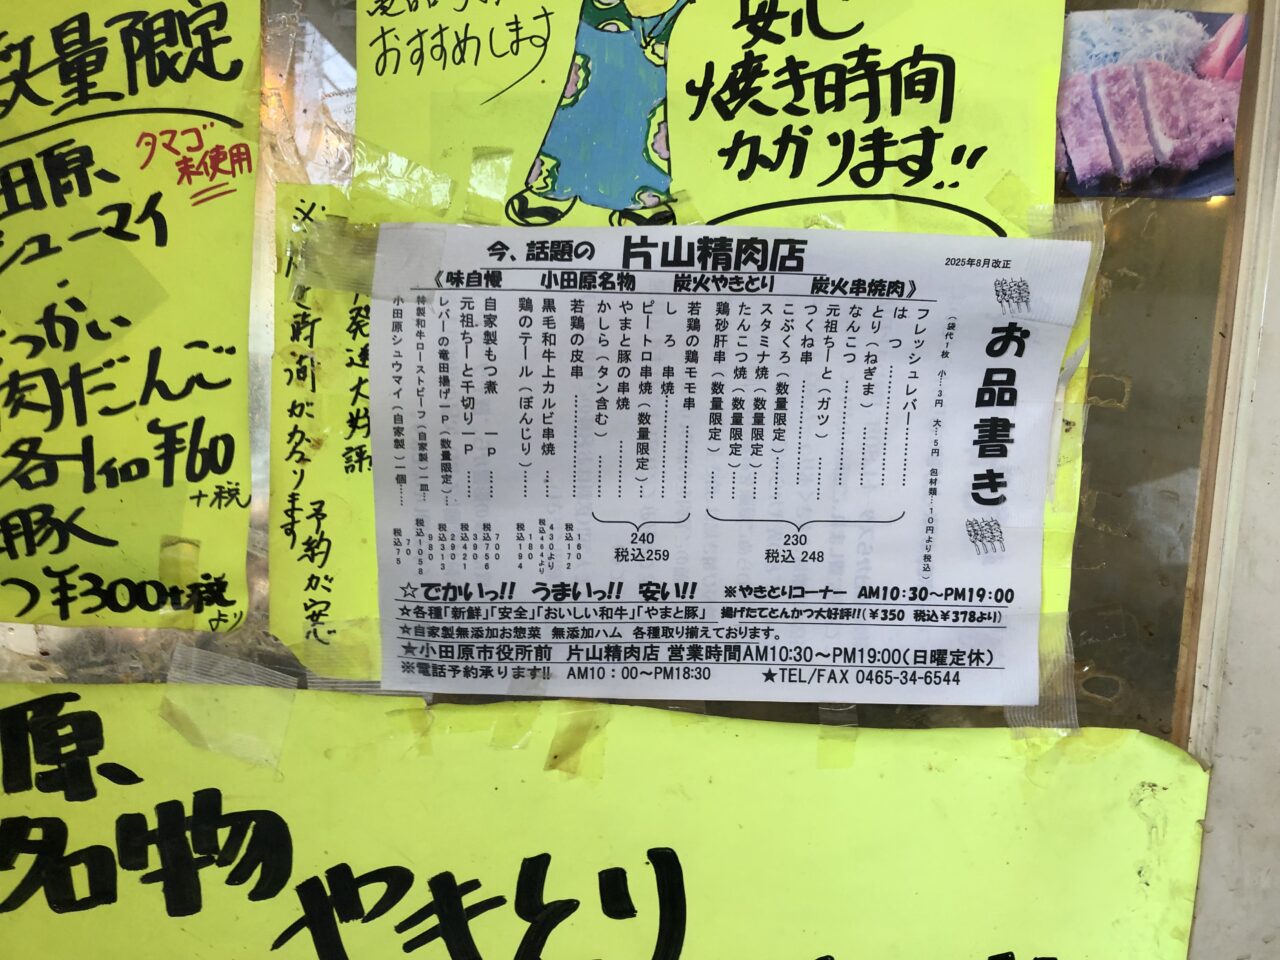 数量限定
タマゴ
未使用
田原
シューマイ
肉だんご
各1ヶ ¥60
+税
豚
¥300+税
より
おすすめします
安心
焼き時間
かかります!!
時間がかかります
予約が安心
発送大好評
今、話題の 片山精肉店
2025年8月改正
《味自慢 小田原名物 炭火やきとり 炭火串焼肉》
お品書き
(袋代1枚 小…3円 大…5円 包材類…10円より税込)
フレッシュレバー
はつ
とり(ねぎま)
なんこつ
元祖ちーと(ガツ)
つくね串
こぶくろ(数量限定)
スタミナ焼(数量限定)
たんこつ焼(数量限定)
鶏砂肝串(数量限定)
230
税込 248
若鶏の鶏モモ串
しろ 串焼
ピートロ串焼(数量限定)
やまと豚の串焼
かしら(タン含む)
240
税込259
若鶏の皮串 160 税込172
黒毛和牛上カルビ串焼 430より 税込464より
鶏のテール(ぼんじり) 180 税込194
自家製もつ煮 一P 700 税込756
元祖ちーと千切り一P 390 税込421
レバーの竜田揚げ一P(数量限定) 290 税込313
特製和牛ローストビーフ(自家製)一皿 980 税込1058
小田原シュウマイ(自家製)一個 70 税込75
☆でかいっ!! うまいっ!! 安い!! ※やきとりコーナー AM10:30～PM19:00
☆各種「新鮮」「安全」「おいしい和牛」「やまと豚」 揚げたてとんかつ大好評!!(¥350 税込¥378より)
☆自家製無添加お惣菜 無添加ハム 各種取り揃えております。
★小田原市役所前 片山精肉店 営業時間AM10:30～PM19:00(日曜定休)
※電話予約承ります!! AM10：00～PM18:30 ★TEL/FAX 0465-34-6544
原
名物
やきとり